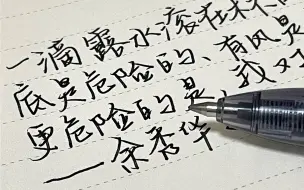 一滴露水滚在木
底是危险的、有风是
更危险的是、我又
——余秀华